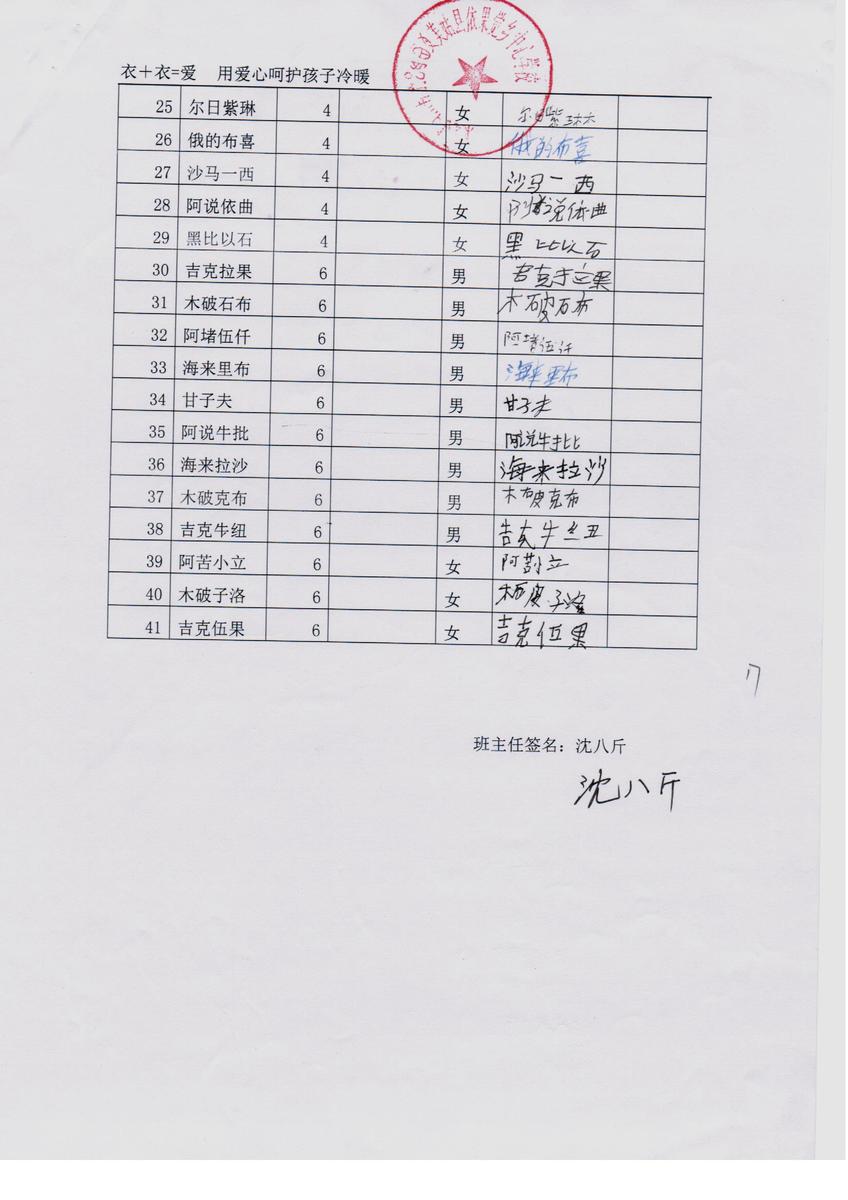 美姑县依果觉乡中心学校
衣+衣=爱 用爱心呵护孩子冷暖
25 尔日紫琳 4 女 尔日紫琳
26 俄的布喜 4 女 俄的布喜
27 沙马一西 4 女 沙马一西
28 阿说依曲 4 女 阿说依曲
29 黑比以石 4 女 黑比以石
30 吉克拉果 6 男 吉克拉果
31 木破石布 6 男 木破石布
32 阿堵伍仟 6 男 阿堵伍仟
33 海来里布 6 男 海来里布
34 甘子夫 6 男 甘子夫
35 阿说牛批 6 男 阿说牛批
36 海来拉沙 6 男 海来拉沙
37 木破克布 6 男 木破克布
38 吉克牛纽 6 男 吉克牛纽
39 阿苦小立 6 女
40 木破子洛 6 女 木破子洛
41 吉克伍果 6 女 吉克伍果
17
班主任签名：沈八斤
沈八斤